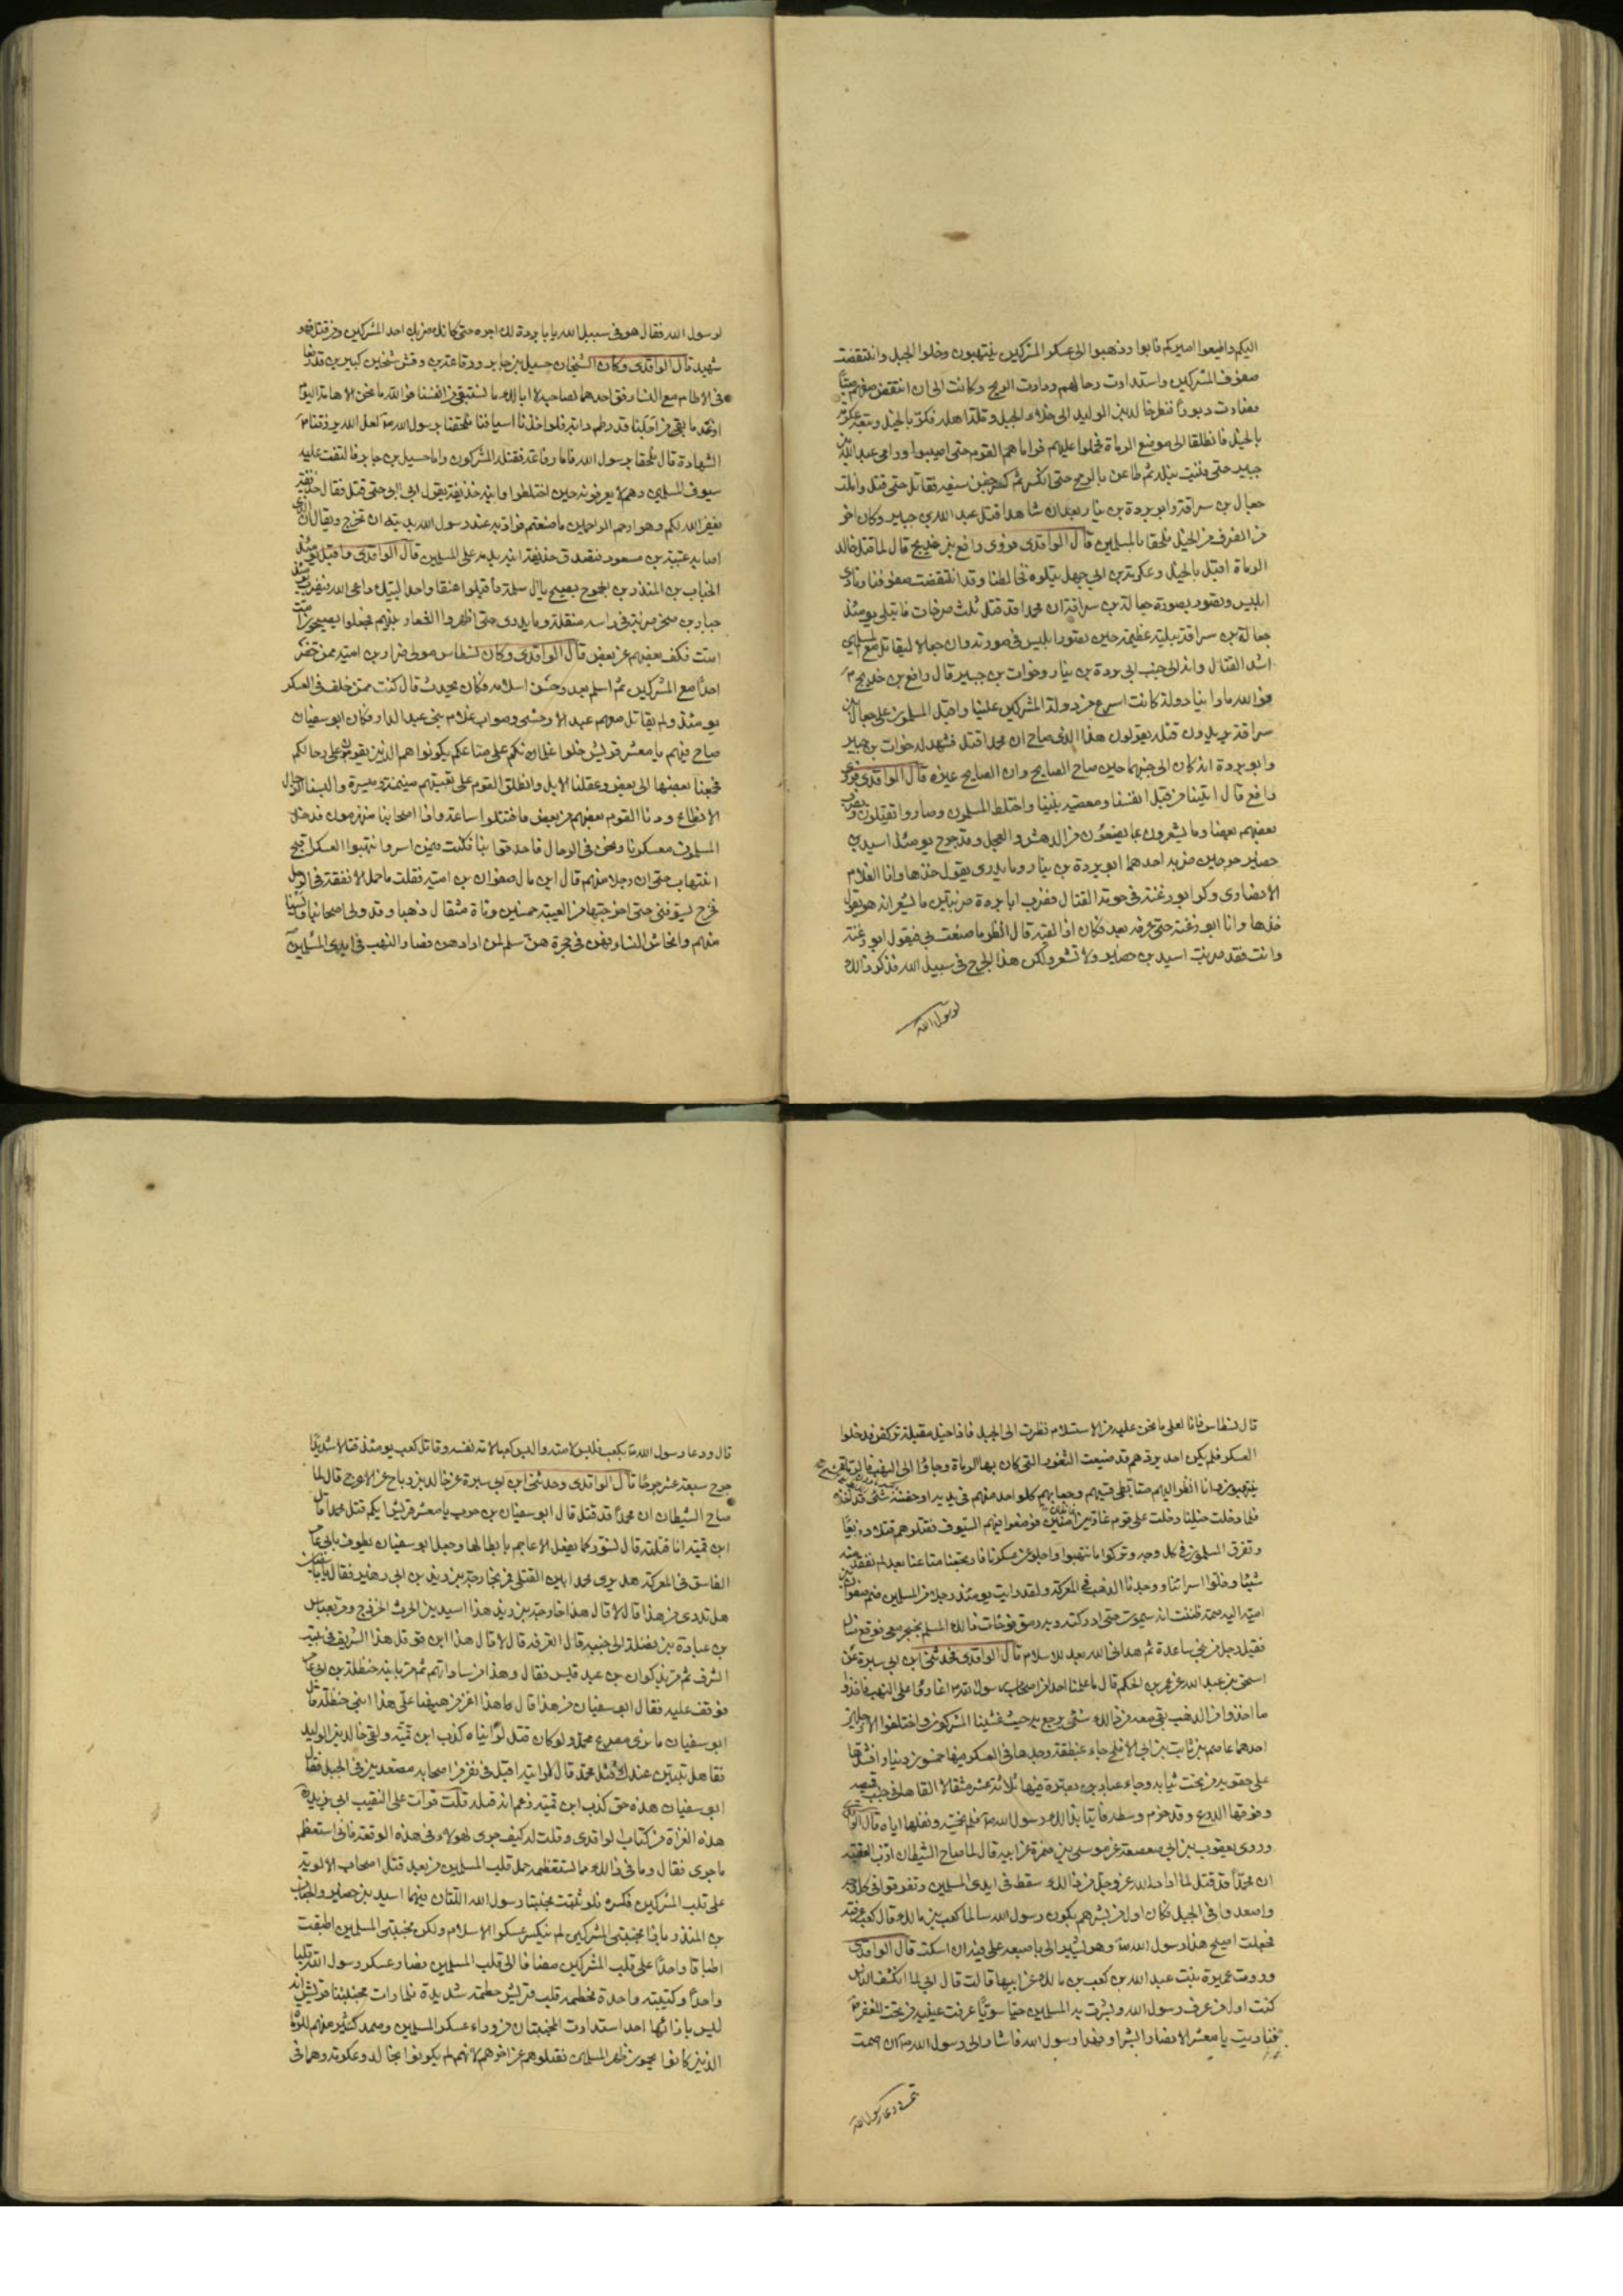 اليكم واطيعوا اميركم فابوا وذهبوا الى عسكر المشركين ينتهبون وخلوا الجبل وانتقضت
صفوف المشركين واستدارت رحالهم ودارت الريح وكانت الى ان انتقض صفهم صبا
فصارت دبورا فنظر خالد بن الوليد الى خلاء الجبل وقلة اهله فكر بالخيل وتبعه عكرمة
بالخيل فانطلقا الى موضع الرماة فحملوا عليهم فراماهم القوم حتى اصيبوا ورامى عبد الله بن
جبير حتى فنيت نبله ثم طاعن بالرمح حتى انكسر ثم كسر جفن سيفه فقاتل حتى قتل وافلت
جعال بن سراقة وابو بردة بن نيار بعد ان شاهدا قتل عبد الله بن جبير وكان اخر
من انصرف من الخيل فلحقا بالمسلمين قال الواقدى فروى رافع بن خديج قال لما قتل خالد
الرماة اقبل بالخيل وعكرمة بن ابي جهل يتلوه فخالطنا وقد انتقضت صفوفنا ونادى
ابليس وتصور بصورة جعالة بن سراقة ان محمدا قد قتل ثلث صرخات فابتلى يومئذ
جعالة بن سراقة ببلية عظيمة حين تصور ابليس في صورته وان جعالا ليقاتل مع المسلمين
اشد القتال وانه الى جنب ابي بردة بن نيار وخوات بن جبير قال رافع بن خديج
فوالله ما راينا دولة كانت اسرع من دولة المشركين علينا واقبل المسلمون على جعال بن
سراقة يريدون قتله يقولون هذا الذى صاح ان محمدا قتل فشهد له خوات بن جبير
وابو بردة انه كان الى جنبهما حين صاح الصايح وان الصايح غيره قال الواقدى فروى
رافع قال اتينا من قبل انفسنا ومعصية نبينا واختلط المسلمون وصاروا يقتلون ويضرب
بعضهم بعضا وما يشعرون بما يصنعون من الدهش والعجل وقد جرح يومئذ اسيد بن
حضير جرحين ضربه احدهما ابو بردة بن نيار وما يدرى يقول خذها وانا الغلام
الانصارى وكر ابو زعنة في حومة القتال فضرب ابا بردة ضربتين ما يشعر انه هو يقول
خذها وانا ابو زعنة حتى عرفه بعد فكان اذا لقيه قال انظر ما صنعت بي فيقول ابو زعنة
وانت فقد ضربت اسيد بن حضير ولا تشعر ولكن هذا الجرح في سبيل الله فذكر ذلك
لرسول الله
لرسول الله فقال هو في سبيل الله يا بابردة لك اجره حتى كانك ضربك احد المشركين ومن قتل فهو
شهيد قال الواقدى وكان الشيخان حسيل بن جابر ورفاعة بن وقش شيخين كبيرين قد رفعا
في الاطام مع النساء فقال احدهما لصاحبه لا ابا لك ما نستبقي من انفسنا فوالله ما نحن الا هامة اليوم
او غد ما بقي من اجلنا قدر ظم دابة فلو اخذنا اسيافنا فلحقنا برسول الله لعل الله يرزقنا
الشهادة قال فلحقا برسول الله فاما رفاعة فقتله المشركون واما حسيل بن جابر فالتقت عليه
سيوف المسلمين وهم لا يعرفونه حين اختلطوا وابنه حذيفة يقول ابي ابي حتى قتل فقال حذيفة
يغفر الله لكم وهو ارحم الراحمين ما صنعتم فزاد به عند رسول الله خيرا وامر رسول الله بديته ان تخرج ويقال ان الذى
اصابه عتبة بن مسعود فتصدق حذيفة ابنه بدمه على المسلمين قال الواقدى واقبل يومئذ
الحباب بن المنذر بن الجموح يصيح يال سلمة فاقبلوا عنقا واحدا لبيك داعي الله فيضرب يومئذ
جبار بن صخر ضربة في راسه منقلة وما يدرى حتى اظهروا الشعار بينهم فجعلوا يصيحون امت
امت فكف بعضهم عن بعض قال الواقدى وكان نسطاس مولى ضرار بن امية ممن حضر
احدا مع المشركين ثم اسلم بعد وحسن اسلامه فكان يحدث قال كنت ممن خلف في العسكر
يومئذ ولم يقاتل معهم عبد الا وحشى وصواب غلام بني عبد الدار وكان ابو سفيان
صاح فيهم يا معشر قريش خلوا غلمانكم على متاعكم يكونوا هم الذين يقومون على رحالكم
فجمعنا بعضها الى بعض وعقلنا الابل وانطلق القوم على تعبيتهم ميمنة وميسرة والبسنا الرحال
الانطاع ودنا القوم بعضهم من بعض فاقتتلوا ساعة واذا اصحابنا منهزمون فدخل
المسلمون معسكرنا ونحن في الرحال فاحدقوا بنا فكنت فيمن اسروا وانتهبوا العسكر اقبح
انتهاب حتى ان رجلا منهم قال اين مال صفوان بن امية فقلت ما حمل الا نفقة في الرحل
فخرج يسوقني حتى اخرجتها من العيبة خمسين ومائة مثقال ذهبا وقد ولى اصحابنا وايسنا
منهم وانحاش النساء فهن في حجرة هن سلم لمن ارادهن فصار النهب في ايدى المسلمين
قال نسطاس فانا لعلى ما نحن عليه من الاستسلام نظرت الى الجبل فاذا خيل مقبلة تركض فدخلوا
العسكر فلم يكن احد يردهم قد ضيعت الثغور التي كان بها الرماة وجاؤا الى النهب
ينتهبون وانا انظر اليهم متابطي قسيهم وجعابهم كل واحد منهم في يديه او حضنه شئ قد اخذه
فلما دخلت خيلنا دخلت على قوم غارين امنين فوضعوا فيهم السيوف فقتلوهم قتلا ذريعا
وتفرق المسلمون في كل وجه وتركوا ما انتهبوا واجلوا عن عسكرنا فارتجعنا متاعنا بعد لم نفقد منه
شيئا وخلوا اسرانا ووجدنا الذهب في المعركة ولقد رايت يومئذ رجلا من المسلمين ضم صفوان بن
امية اليه ضمة ظننت انه سيموت حتى ادركته وبه رمق فوجات ذلك المسلم بخنجر معي فوقع فسالت عنه
فقيل رجل من بني ساعدة ثم هداني الله بعد للاسلام قال الواقدى فحدثني ابن ابي سبرة عن
اسحق بن عبد الله عن عمر بن الحكم قال ما علمنا احدا من اصحاب رسول الله اغاروا على النهب فاخذوا
ما اخذوا من الذهب بقي معه من ذلك شئ يرجع به حيث غشينا المشركون واختلفوا الا رجلين
احدهما عاصم بن ثابت بن ابي الافلح جاء بمنطقة وجدها في العسكر فيها خمسون دينارا فشدها
على حقويه من تحت ثيابه وجاء عباد بن بشر بصرة فيها ثلاثة عشر مثقالا القاها في جيب قميصه
وفوقها الدرع وقد حزم وسطه فاتيا بذلك رسول الله فلم يخمسه ونفلهما اياه قال الواقدى
وروى يعقوب بن ابي صعصعة عن موسى بن ضمرة عن ابيه قال لما صاح الشيطان ازب العقبة
ان محمدا قد قتل لما اراد الله عز وجل من ذلك سقط في ايدى المسلمين وتفرقوا في كل وجه
واصعدوا في الجبل فكان اول من بشرهم بكون رسول الله سالما كعب بن مالك قال كعب عرفته
فجعلت اصيح هذا رسول الله وهو يشير الى باصبعه على فيه ان اسكت قال الواقدى
وروت عميرة بنت عبد الله بن كعب بن مالك عن ابيها قالت قال ابي لما انكشف الناس
كنت اول من عرف رسول الله وبشرت به المسلمين حيا سويا عرفت عينيه من تحت المغفر
فناديت يا معشر الانصار ابشروا فهذا رسول الله فاشار الى رسول الله ان اصمت
قال ودعا رسول الله
قال ودعا رسول الله بكعب فلبس لامته والبس كعبا لامة نفسه وقاتل كعب يومئذ قتالا شديدا
جرح سبعة عشر جرحا قال الواقدى وحدثني ابن ابي سبرة عن خالد بن رباح عن الاعرج قال لما
صاح الشيطان ان محمدا قد قتل قال ابو سفيان بن حرب يا معشر قريش ايكم قتل محمدا قال
ابن قمية انا قتلته قال نسورك كما يفعل الاعاجم بابطالها وجعل ابو سفيان يطوف بابي عامر
الفاسق في المعركة هل يرى محمدا بين القتلى فمر بخارجة بن زيد بن ابي زهير فقال يا باسفيان
هل تدرى من هذا قال لا قال هذا خارجة بن زيد هذا اسيد بني الحرث الخزرج ومر بعباس
بن عبادة بن نضلة الى جنبه قال اتعرفه قال لا قال هذا ابن قوقل هذا الشريف في بيت
الشرف ثم مر بذكوان بن عبد قيس فقال وهذا من ساداتهم ثم مر بابنه حنظلة بن ابي عامر
فوقف عليه فقال ابو سفيان من هذا قال هذا اعز من ههنا على هذا ابني حنظلة قال
ابو سفيان ما نرى مصرع محمد ولو كان قتل لرايناه كذب ابن قمية ولقى خالد بن الوليد
فقال هل تبين عندك قتل محمد قال لا رايته اقبل في نفر من اصحابه مصعدين في الجبل فقال
ابو سفيان هذا حق كذب ابن قمية زعم انه قتله قلت قرات على النقيب ابي يزيد
هذه الغزاة من كتاب الواقدى وقلت له كيف جرى لهؤلاء في هذه الوقعة فاني استعظم
ما جرى فقال وما في ذلك مما تستعظمه حمل قلب المسلمين من بعد قتل اصحاب الالوية
على قلب المشركين فكسره فلو ثبتت مجنبتا رسول الله اللتان فيهما اسيد بن حضير والحباب
بن المنذر بازاء مجنبتي المشركين لم ينكسر عسكر الاسلام ولكن مجنبتي المسلمين اطبقت
اطباقا واحدا على قلب المشركين مضافا الى قلب المسلمين فصار عسكر رسول الله قلبا
واحدا وكتيبة واحدة فحطمه قلب قريش حطمة شديدة فلما رات مجنبتا قريش انه
ليس بازائها احد استدارت المجنبتان من وراء عسكر المسلمين وصمد كثير منهم للرماة
الذين كانوا يحمون ظهر المسلمين فقتلوهم عن اخرهم لانهم لم يكونوا ممن يقوم لخالد وعكرمة وهما في